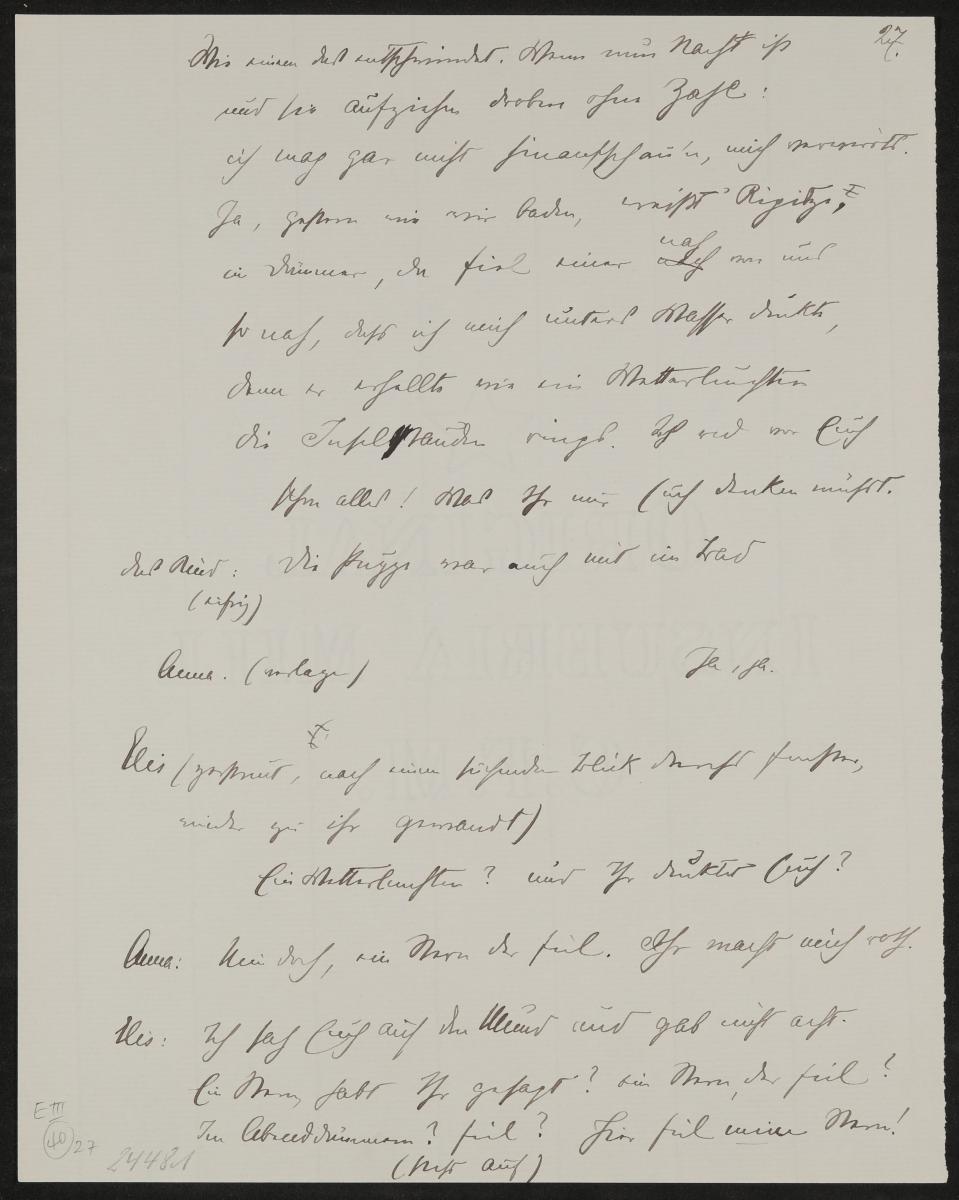 27.
Wie einen das entschwindet. Wenn nun Nacht ist
und sie aufziehn droben ohne Zahl:
ich mag gar nicht hinaufschau'n, mich verwirrts.
Ja, gestern wie wir baden,
im Dämmer, da fiel einer nah von uns
so nah, dass ich mich unters Wasser duckte,
denn er erhellte wie ein Wetterleuchten
die Insel rings. Ich red vor Euch
schon alles! Was Ihr nur Euch denken müsst.
das Kind: Die Puppe war auch mit im Bad
(eifrig)
Anna. (verlegen) Ja, ja.
Elis (zerstreut, nach einem suchenden Blick durchs Fenster,
wieder zu ihr gewandt)
Ein Wetterleuchten? und Ihr ducktet Euch?
Anna: Nein doch, ein Stern der fiel. Ihr macht mich roth.
Elis: Ich sah Euch auf den Mund und gab nicht acht.
Ein Stern, habt Ihr gesagt? ein Stern, der fiel?
Im Abenddämmern? fiel? Hier fiel mein Stern!
(steht auf)
E III
40 27
24481